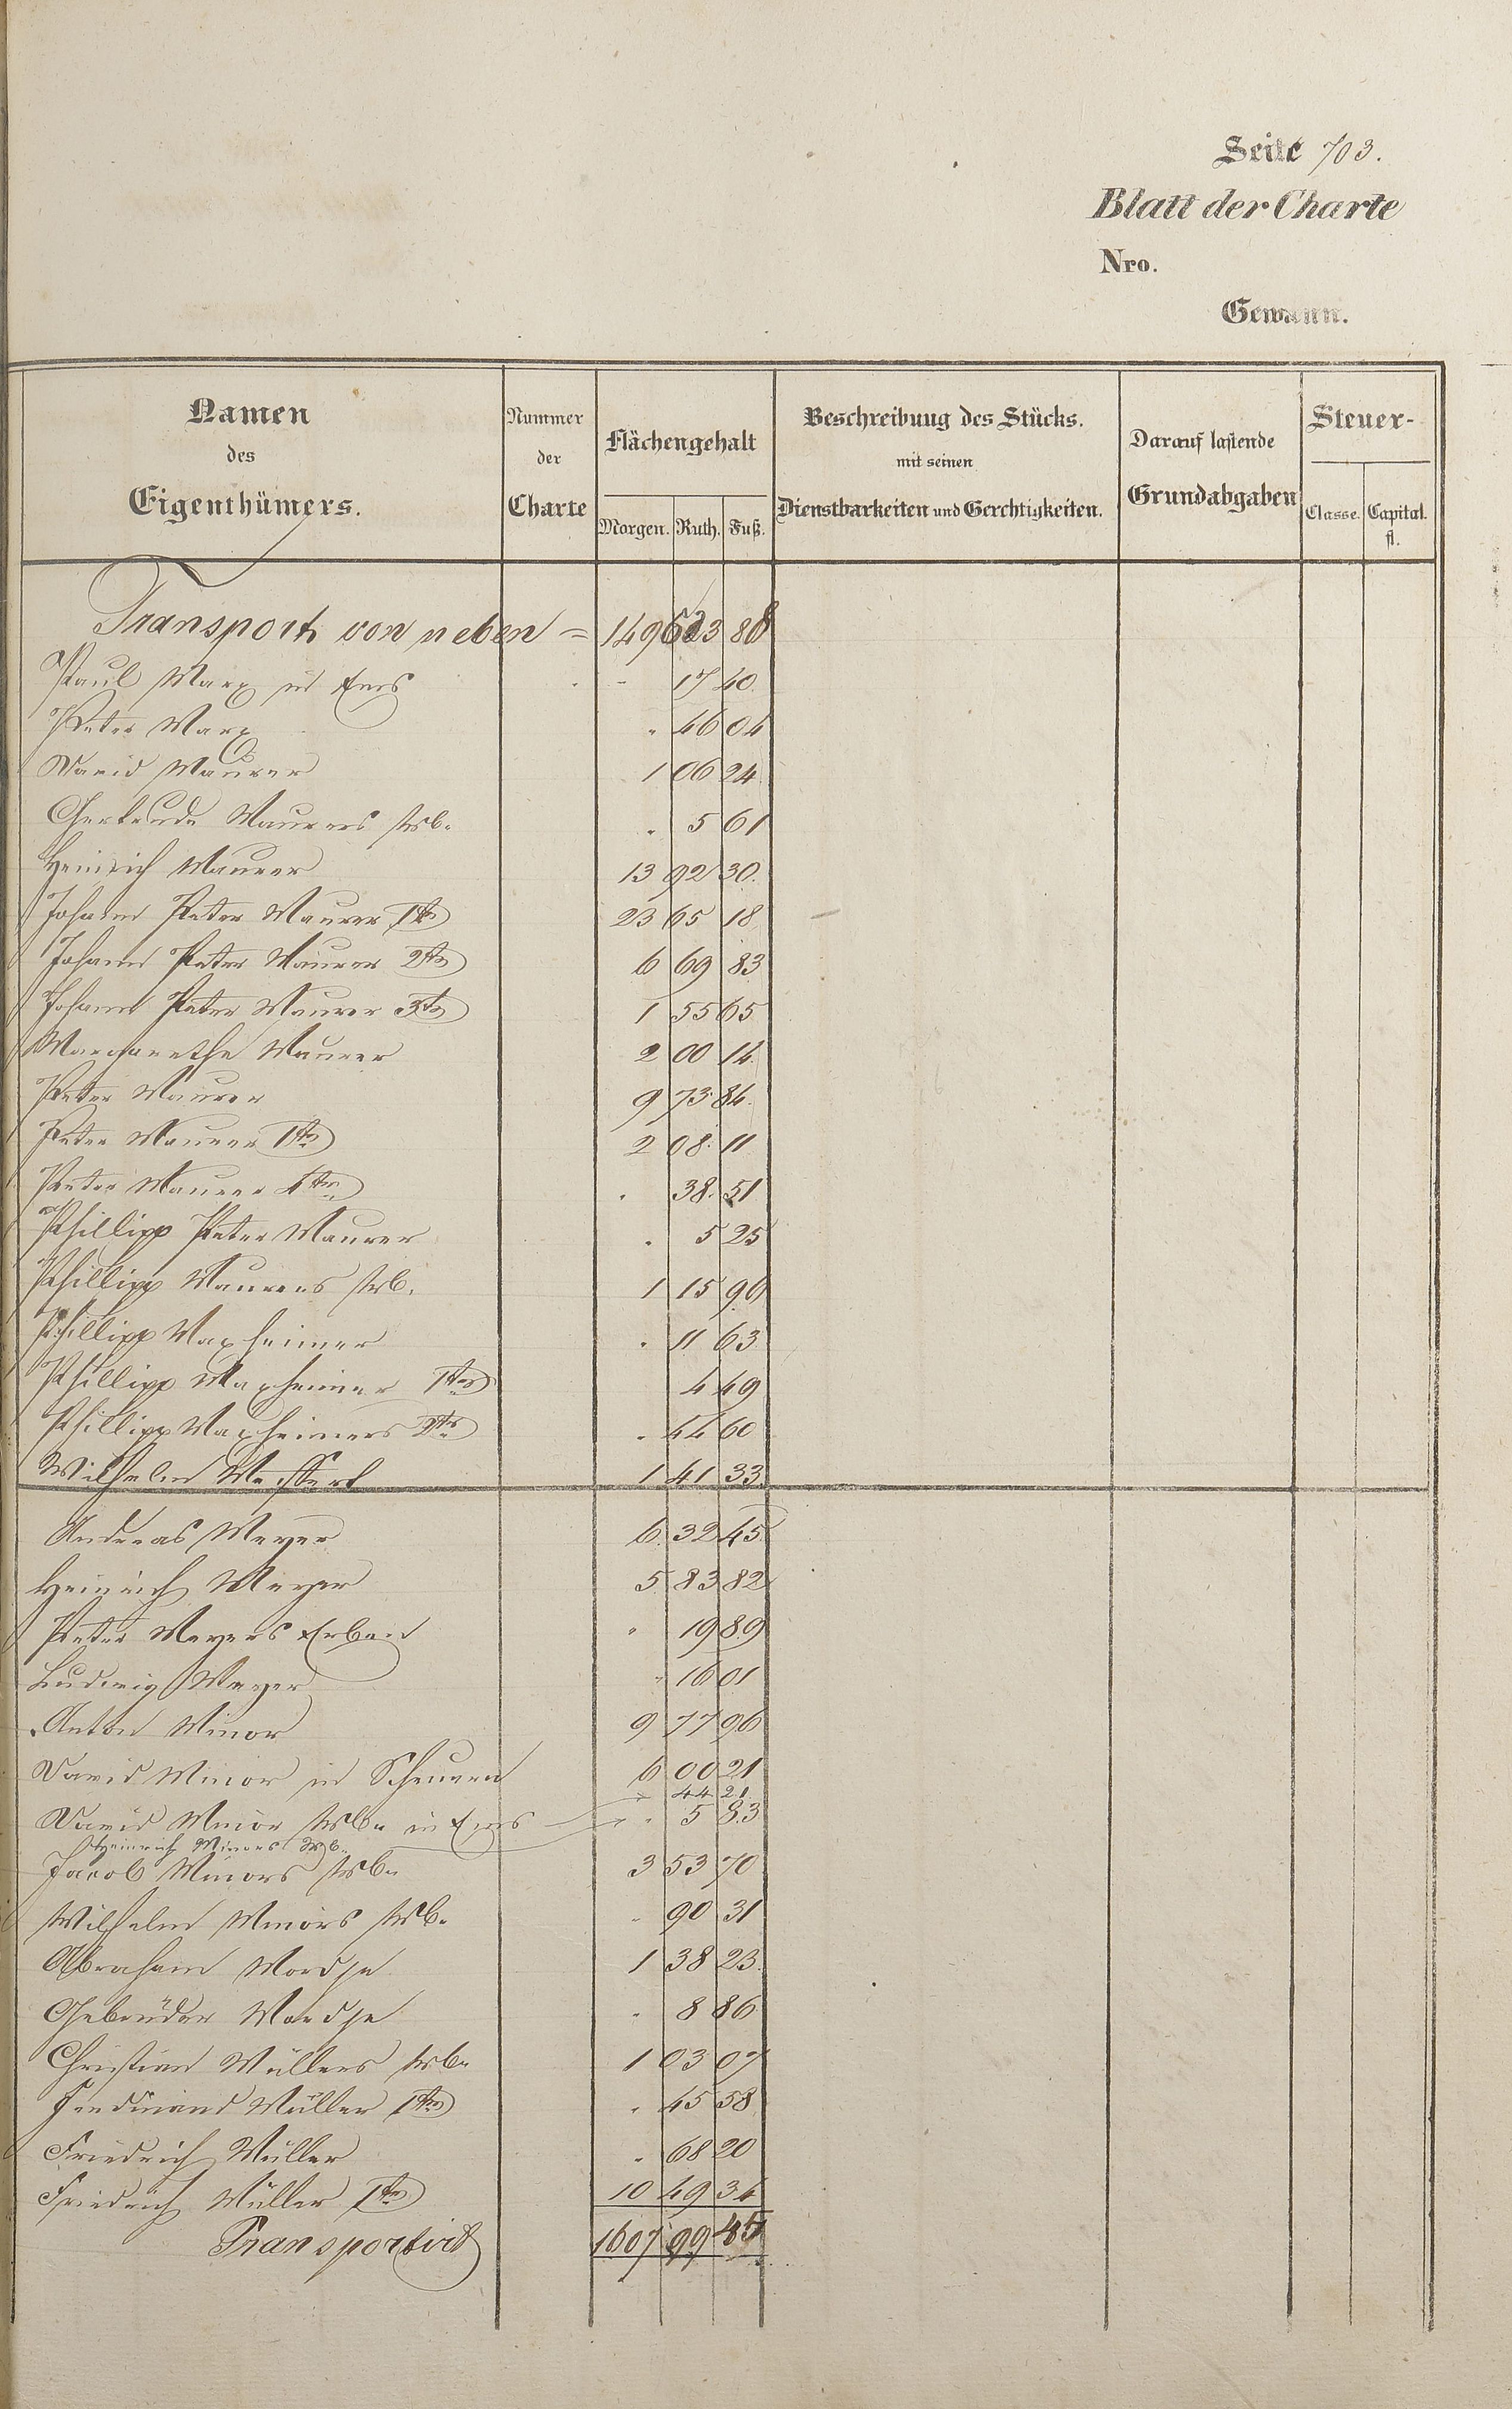 Seite 703.
Blatt der Charte
Nro.
Gewann.
Namen des Eigenthümers. Nummer der Charte Flächengehalt Morgen. Ruth. Fuß. Beschreibung des Stücks. mit seinen Dienstbarkeiten und Gerechtigkeiten. Darauf lastende Grundabgaben Steuer- Classe. Capital. fl.
Transport von neben = 1496 88
Paul Marx in Ems - 17 40
Peter Marx " 46 04
David Maurer 1 06 24
Gertrude Maurers Wb. " 5 61
Heinrich Maurer 13 92 30
Johann Peter Maurer 1tr 23 65 18
Johann Peter Maurer 2tr 6 69 83
Johann Peter Maurer 3tr 1 55 65
Margarethe Maurer 2 00 14
Peter Maurer 9 73 84
Peter Maurer 1tr 2 08 11
Peter Maurer 4tr " 38 51
Phillipp Peter Maurer " 5 25
Phillipp Maurers Wb. 1 15 96
Phillipp Maxheimer " 11 63
Phillipp Maxheimer 1ter 4 49
Phillipp Maxheimers 2tr " 44 60
Wilhelm Meffert 1 41 33
Andreas Meyer 6 32 45
Heinrich Meyer 5 83 82
Peter Meyers Erben " 19 89
Ludwig Meyer " 16 01
Anton Minor 9 77 96
David Minor in Scheuern 6 00 21
" 44 21
David Minor Wb. in Ems " 5 83
Heinrich Minors Wb.
Jacob Minors Wb. 3 53 70
Wilhelm Minors Wb. " 90 31
Abraham Mordje 1 38 23
Gebrüder Mordje " 8 86
Christian Müllers Wb. 1 03 07
Ferdinand Müller 1tr " 45 58
Friedrich Müller " 68 20
Friedrich Müller 1tr 10 49 34
Transportirt 1607 99 45